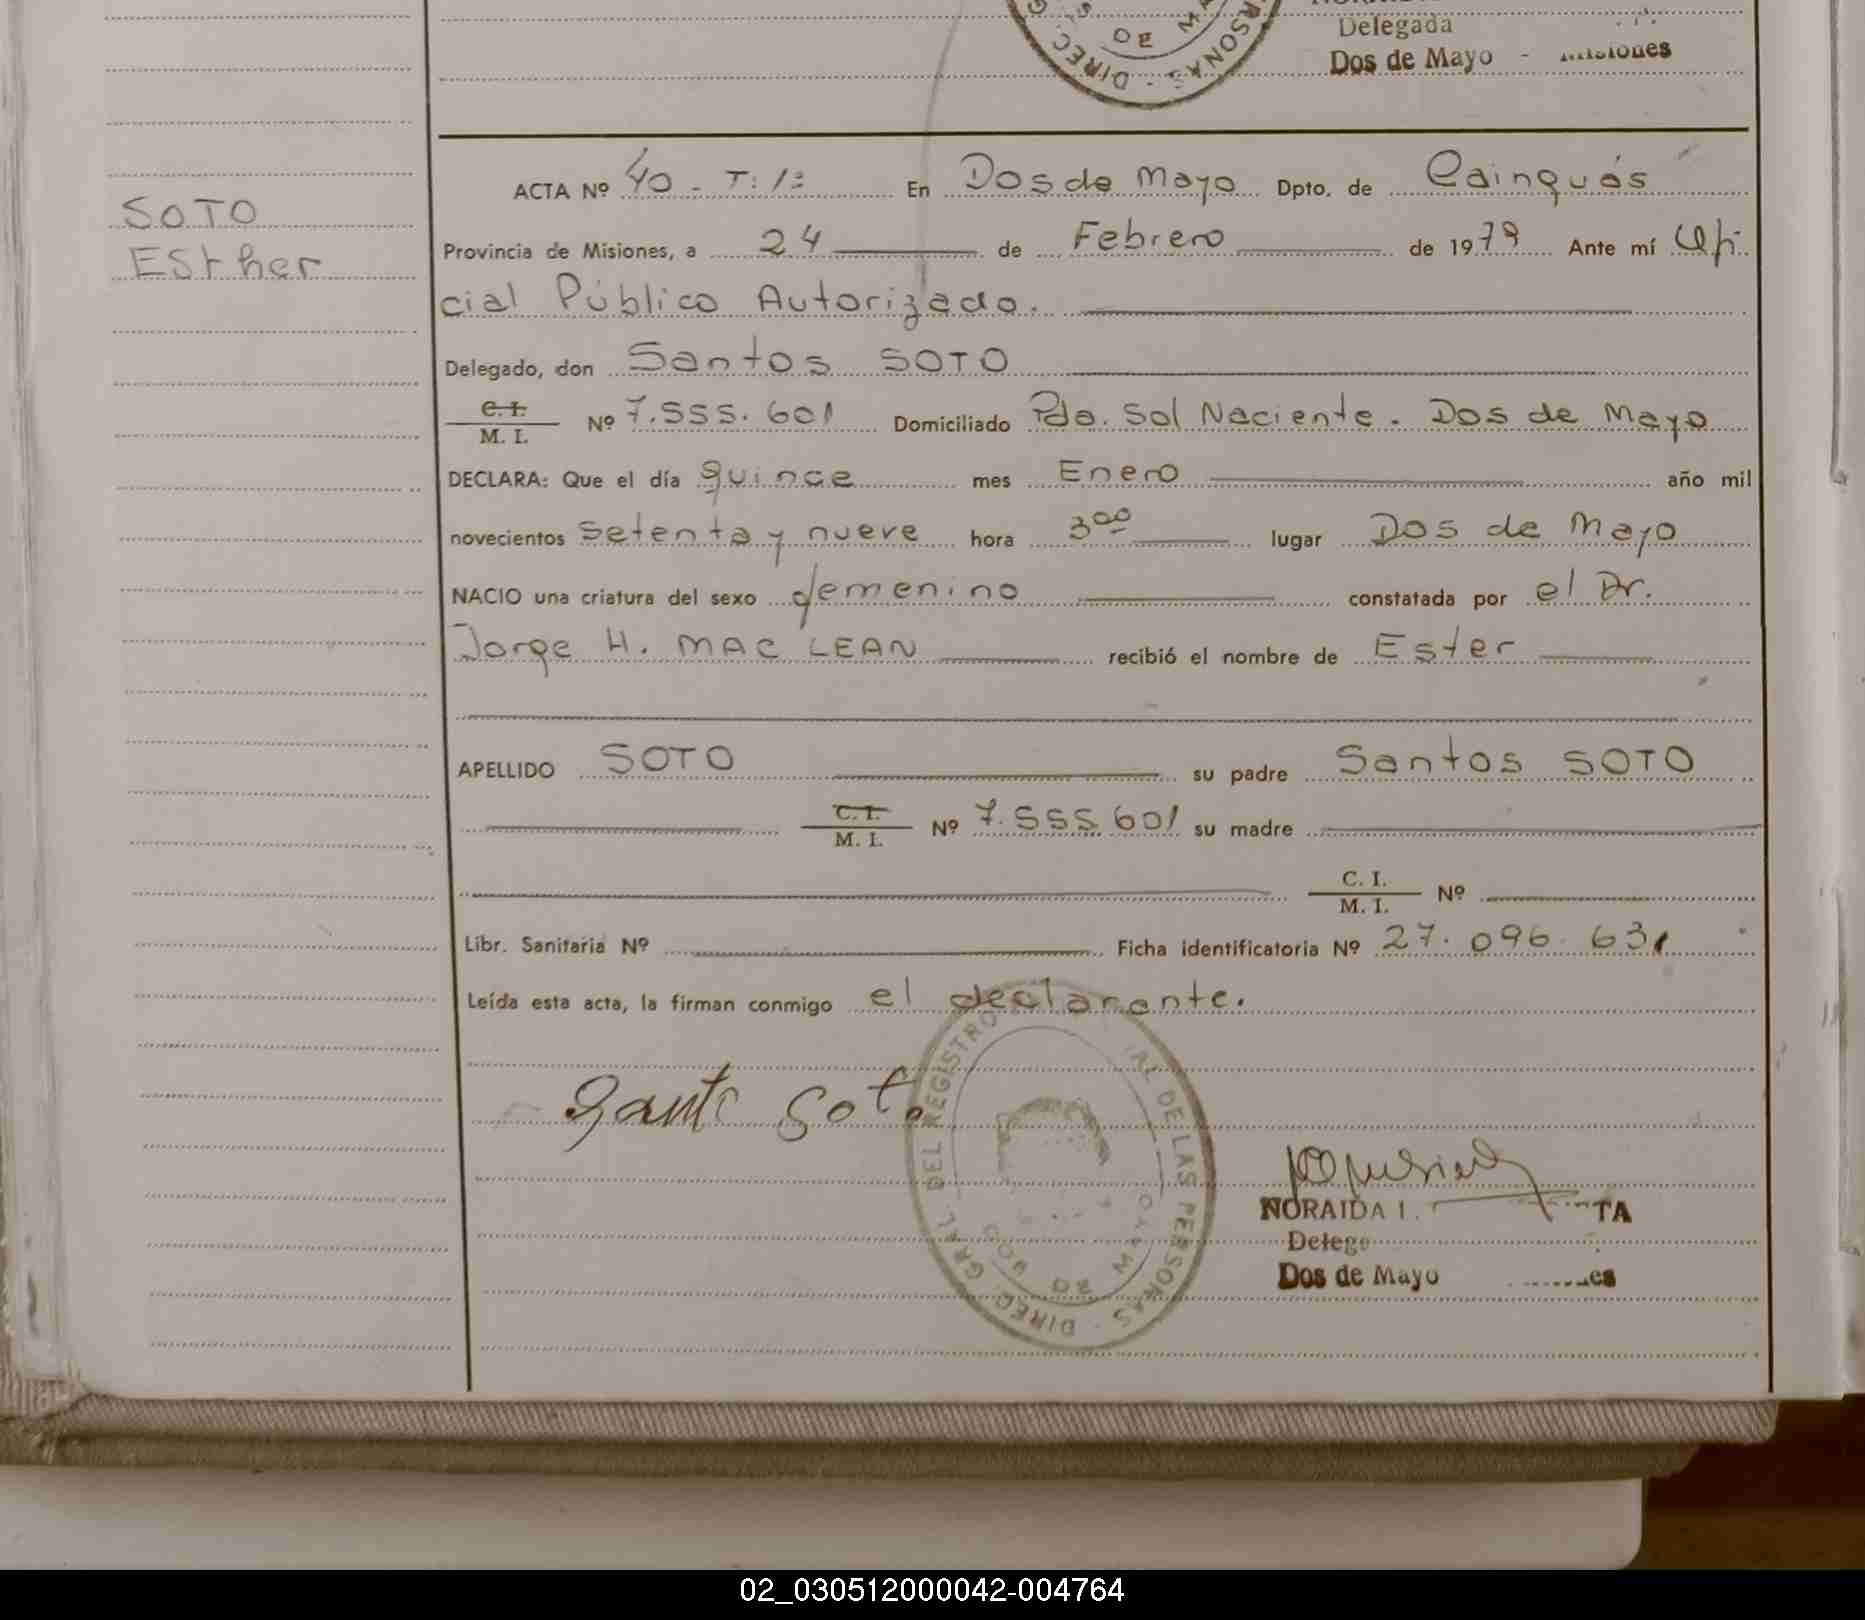 Delegada
Dos de Mayo - Misiones
DE
DIREC. PERSONAS
ACTA Nº 40 - T: 1º En Dos de Mayo Dpto. de Cainguás
SOTO
Esther
Provincia de Misiones, a 24 de Febrero de 1979 Ante mí Ofi
cial Público Autorizado.
Delegado, don Santos SOTO
C. I.
M. I. Nº 7.555.601 Domiciliado Pdo. Sol Naciente. Dos de Mayo
DECLARA: Que el día quince mes Enero año mil
novecientos setenta y nueve hora 3⁰⁰ lugar Dos de Mayo
NACIO una criatura del sexo femenino constatada por el Dr.
Jorge H. MAC LEAN recibió el nombre de Ester
APELLIDO SOTO su padre Santos SOTO
C. I.
M. I. Nº 7.555.601 su madre
C. I.
M. I. Nº
Libr. Sanitaria Nº Ficha identificatoria Nº 27.096.631
Leída esta acta, la firman conmigo el declarante.
Santo Soto
DIREC. GRAL. DEL REGISTRO DE LAS PERSONAS
DOS DE MAYO
NORAIDA I.
Dos de Mayo
02_030512000042-004764